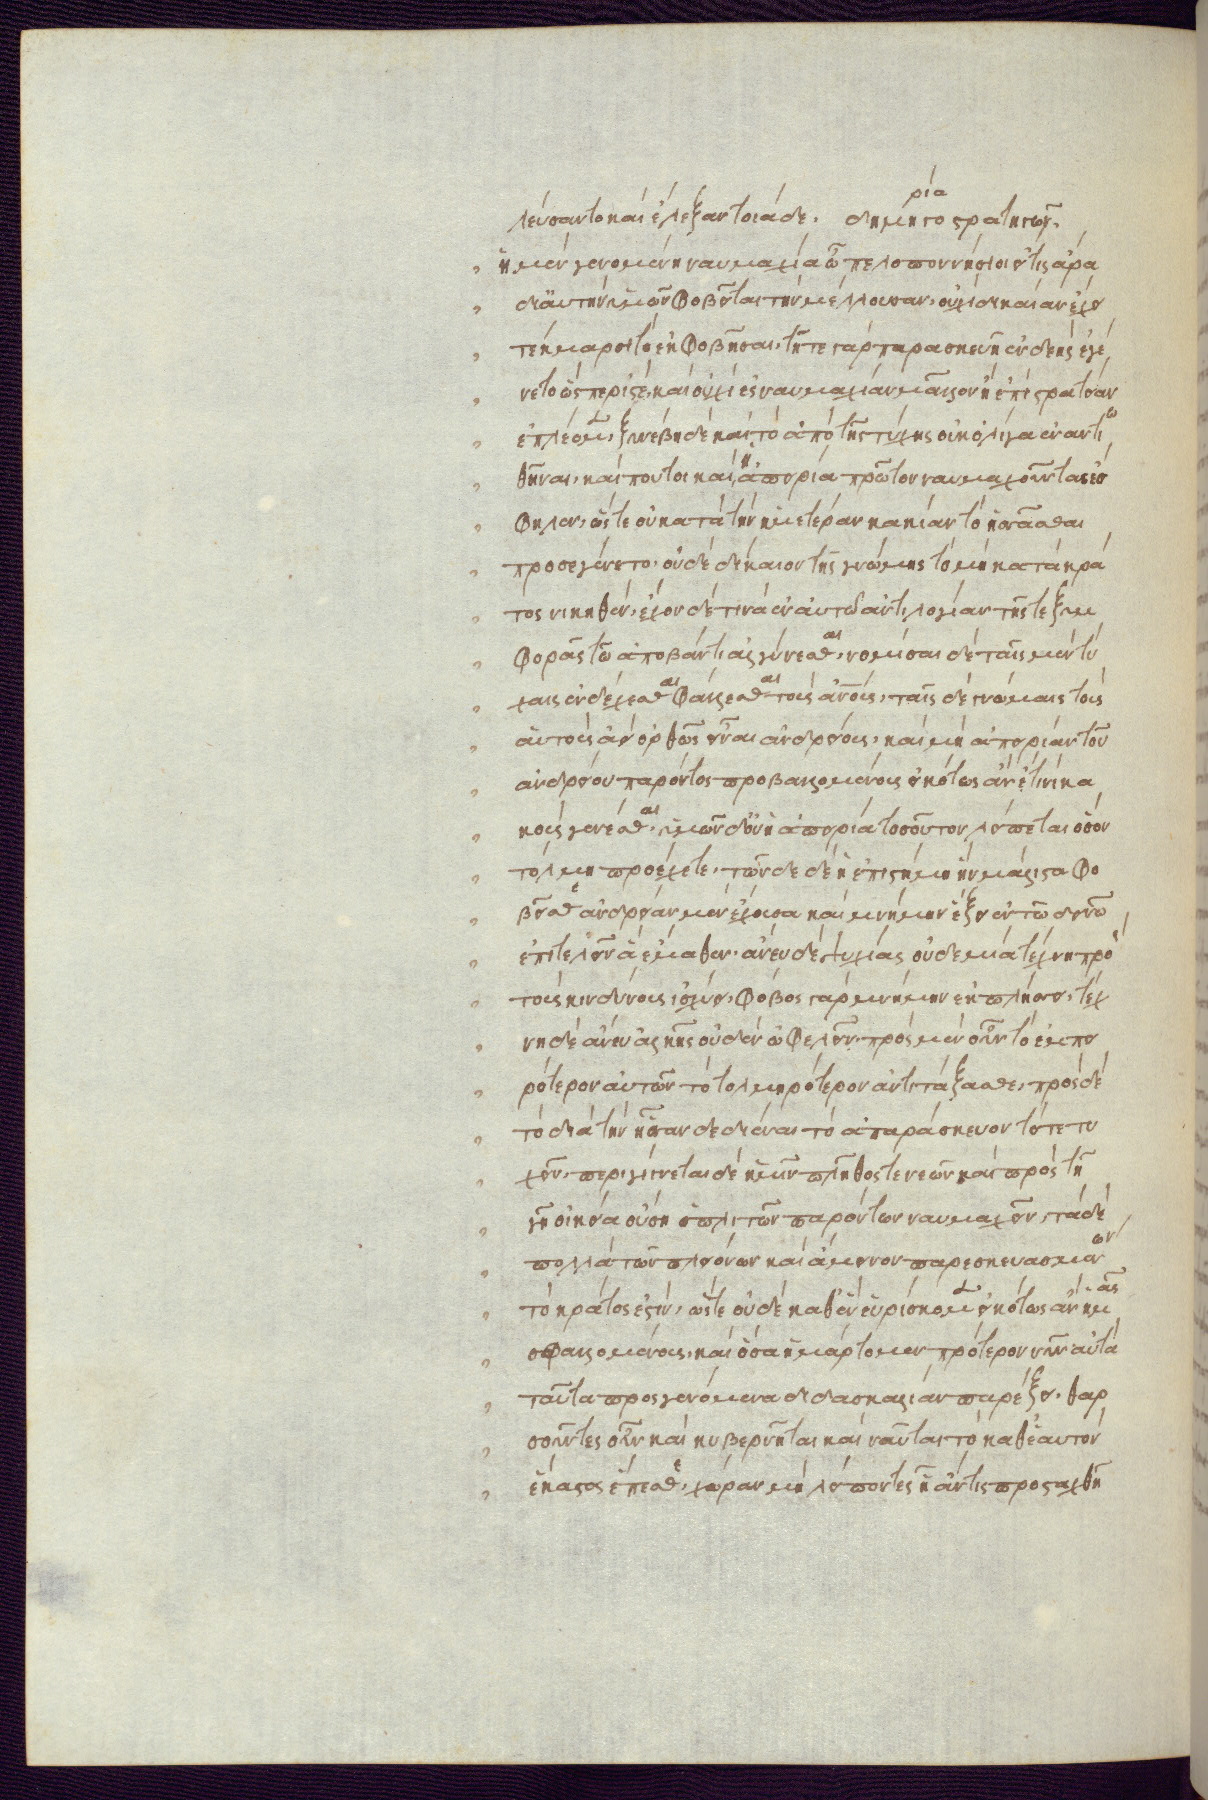 λεύσαντο καὶ ἔλεξαν τοιάδε. δημηγορία στρατηγῶν.
ἡ μὲν γενομένη ναυμαχία ὦ πελοποννήσιοι εἴτις ἄρα
δι' αὐτὴν ὑμῶν φοβεῖται τὴν μέλλουσαν, οὐχὶ δικαίαν ἔχει
τέκμαρσιν τὸ ἐκφοβῆσαι, τῆ τε γὰρ παρασκευῆ ἐνδεὴς ἐγέ
νετο ὥσπερ ἴστε, καὶ οὐχὶ ἐς ναυμαχίαν μᾶλλον ἢ ἐπὶ στρατείαν
ἐπλέομεν, ξυνέβη δὲ καὶ τὸ ἀπὸ τῆς τύχης οὐκ ὀλίγα ἐναντιω
θῆναι, καί που τι καὶ ἡ ἀπειρία πρῶτον ναυμαχοῦντας ἔσ
φηλεν, ὥστε οὐ κατὰ τὴν ἡμετέραν κακίαν τὸ ἡσσᾶσθαι
προσεγένετο, οὐδὲ δίκαιον τῆς γνώμης τὸ μὴ κατὰ κρά
τος νικηθέν, ἔχον δέ τινα ἐν αὐτῶ ἀντιλογίαν τῆς τε ξυμ
φορᾶς τῶ ἀποβάντι ἀμβλύνεσθαι, νομίσαι δὲ ταῖς μὲν τύ
χαις ἐνδέχεσθαι σφάλλεσθαι τοὺς ἀνους, ταῖς δὲ γνώμαις τοὺς
αὐτοὺς ἀεὶ ὀρθῶς εἶναι ἀνδρείους, καὶ μὴ ἀπειρίαν τοῦ
ἀνδρείου παρόντος προβαλλομένους εἰκότως ἂν ἔν τινι κα
κοὺς γενέσθαι, ὑμῶν δὲ οὐδ' ἡ ἀπειρία τοσοῦτον λείπεται ὅσον
τόλμη προέχετε, τῶνδε δὲ ἡ ἐπιστήμη ἣν μάλιστα φο
βεῖσθε ἀνδρείαν μὲν ἔχουσα καὶ μνήμην ἕξει ἐν τῶ δεινῶ
ἐπιτελεῖν ἃ ἔμαθεν, ἄνευ δὲ εὐψυχίας οὐδεμία τέχνη πρὸς
τοὺς κινδύνους ἰσχύει, φόβος γὰρ μνήμην ἐκπλήσσει, τέχ
νη δὲ ἄνευ ἀλκῆς οὐδὲν ὠφελεῖ, πρὸς μὲν οὖν τὸ ἐμπει
ρότερον αὐτῶν τὸ τολμηρότερον ἀντιτάξασθε, πρὸς δὲ
τὸ διὰ τὴν ἧσσαν δεδιέναι τὸ ἀπαράσκευον τότε τυ
χεῖν, περιγίγνεται δὲ ἡμῖν πλῆθός τε νεῶν καὶ πρὸς τῆ
γῆ οἰκεία οὔση ὁπλιτῶν παρόντων ναυμαχεῖν, τὰ δὲ
πολλὰ τῶν πλειόνων καὶ ἄμεινον παρεσκευασμένων
τὸ κράτος ἐστίν, ὥστε οὐδὲ καθ' ἓν εὑρίσκομεν εἰκότως ἂν ἡμᾶς
σφαλλομένους, καὶ ὅσα ἡμάρτομεν πρότερον νῦν αὐτὰ
ταῦτα προσγενόμενα διδασκαλίαν παρέξει, θαρ
σοῦντες οὖν καὶ κυβερνῆται καὶ ναῦται τὸ καθ' ἑαυτὸν
ἕκαστος ἕπεσθε, χώραν μὴ λείποντες ἧ ἄν τις προσταχθῆ